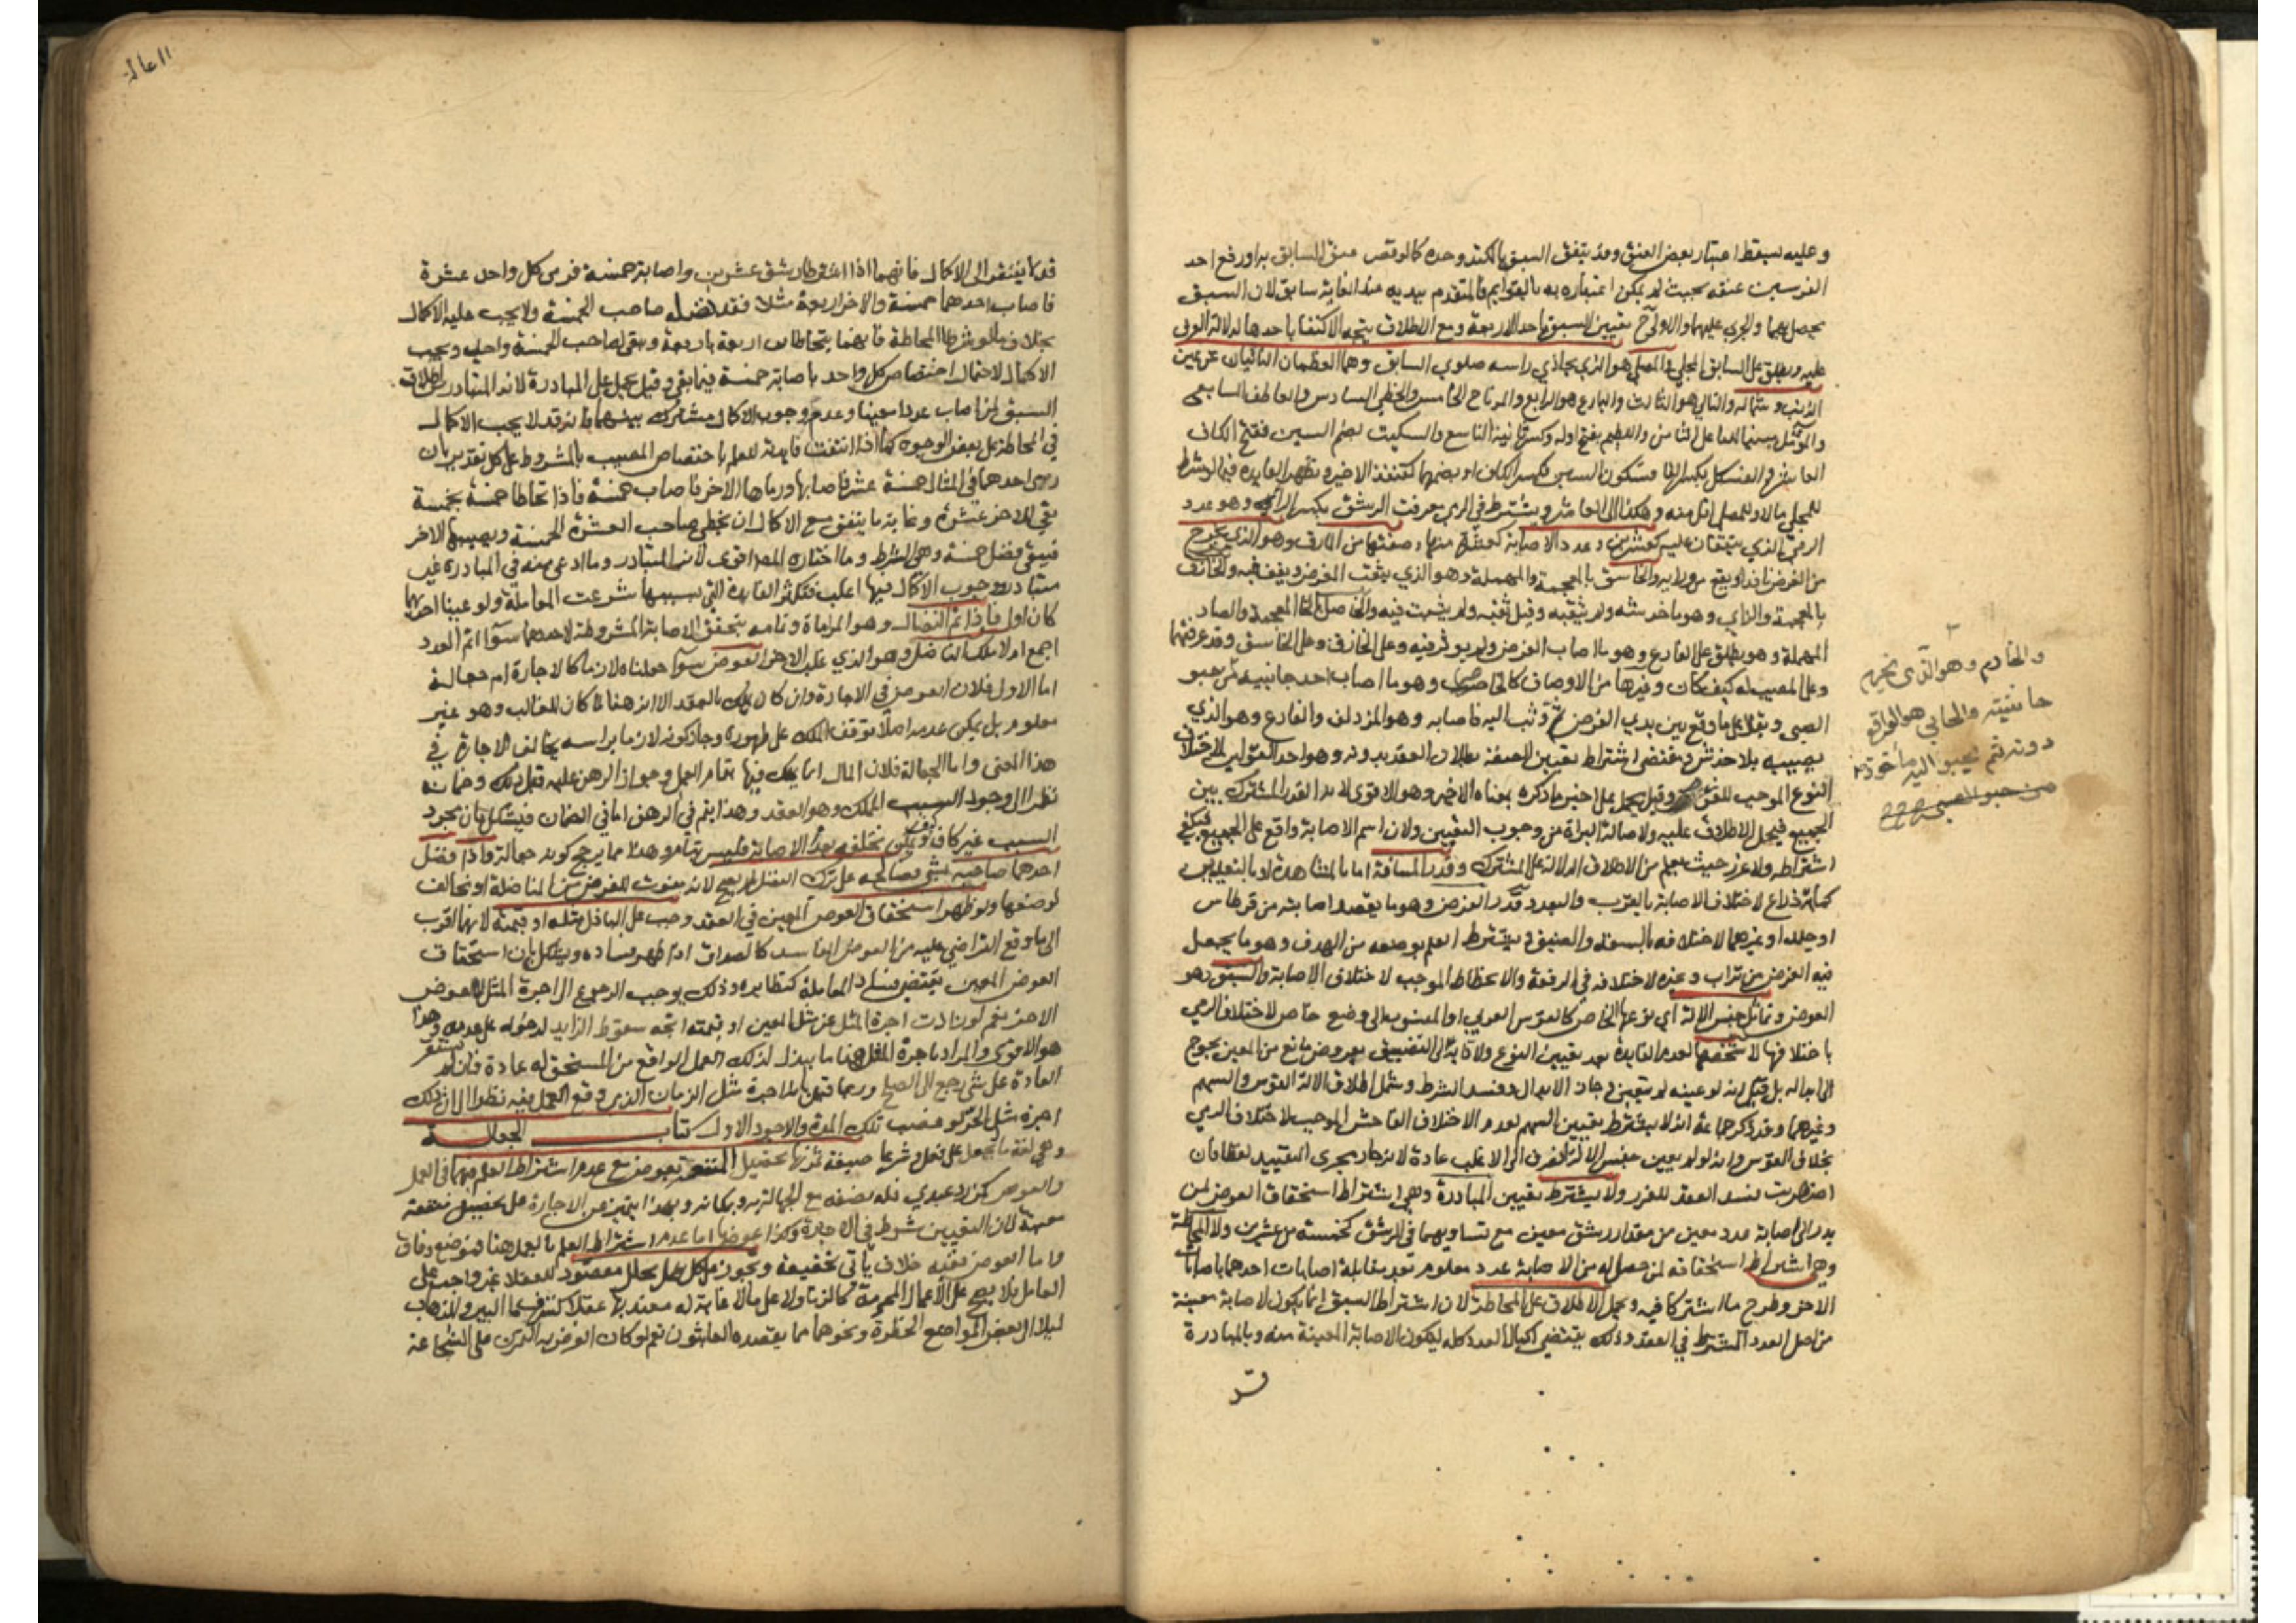 وعليه يسقط اعتبار بعض العنق وقد يتفق السبق بالكتد وحده كما لو قصر عنق السابق به او رفع احد
الفرسين عنقه بحيث لم يكن اعتباره به وبالقوايم فالمتقدم بيديه عند الغاية سابق لان السبق
يحصل بهما والجري عليهما والاولى ح تعيين السبق باحد الاربعة ومع الاطلاق يتجه الاكتفا باحدها لدلالة العرف
عليه ويطلق على السابق المجلي والمصلي هو الذي يحاذي راسه صلوي السابق وهما العظمان الناتيان عن يمين
الذنب وشماله والتالي هو الثالث والبارع هو الرابع والمرتاح الخامس والحظي السادس والعاطف السابع
والمؤمل مبنيا للفاعل الثامن واللطيم بفتح اوله وكسر ثانيه التاسع والسكيت بضم السين ففتح الكاف
العاشر والفسكل بكسر الفا فسكون السين فكسر الكاف او بضمهما كقنفذ الاخير وتظهر الفايدة فيما لو شرط
للمجلي مالا وللمصلي اقل منه وهكذا الى العاشر ويشترط في الرمي معرفت الرشق بكسر الراء وهو عدد
الرمي الذي يتفقان عليه كعشرين وعدد الاصابة كعشرة منها وصفتها من المارق وهو الذي يخرج
من الغرض نافذا ويقع من ورايه والخاسق بالمعجمة والمهملة وهو الذي يثقب الغرض ويقف فيه والخازق
بالمعجمة والزاي وهو ما خدشه ولم يثقبه وقيل ثقبه ولم يثبت فيه والخاصل بالخا المعجمة والصاد
المهملة وهو يطلق على القارع وهو ما اصاب الغرض ولم يوثر فيه وعلى الخازق وعلى الخاسق وقد عرفتهما
وعلى المصيب له كيف كان وغيرها من الاوصاف كالخاصر وهو ما اصاب احد جانبيه من حبو
الصبي ويقال على ما وقع بين يدي الغرض ثم وثب اليه فاصابه وهو المزدلف والقارع وهو الذي
يصيبه بلا خدش ومقتضى اشتراط تعيين الصفة بطلان العقد بدونه وهو احد القولين لاختلاف
النوع الموجب للغرر وقيل يحمل على اخير ما ذكره بمعناه الاخير وهو الاقوى لانه القدر المشترك بين
الجميع فيحمل الاطلاق عليه ولاصالة البراة من وجوب التعيين ولان اسم الاصابة واقع على الجميع فيكفي
اشتراطه ولا غرر حيث يعلم من الاطلاق الدلالة على المشترك وقدر المسافة اما بالمشاهدة او بالتعيين
كماية ذراع لاختلاف الاصابة بالقرب والبعد وقدر الغرض وهو ما يقصد اصابته من قرطاس
او جلد او غيرهما لاختلافه بالسعة والضيق ويشترط العلم بوضعه من الهدف وهو ما يجعل
فيه الغرض من تراب وغيره لاختلافه في الرفعة والانحطاط الموجب لاختلاف الاصابة والسبق وهو
العوض وتماثل جنس الالة اي نوعها الخاص كالقوس العربي او المنسوب الى وضع خاص لاختلاف الرمي
باختلافها لا شخصها لعدم الفايدة بعد تعيين النوع ولادايه الى التضييق بعروض مانع من المعين يحوج
الى ابداله بل قيل انه لو عينه لم يتعين وجاز الابدال وفسد الشرط وشمل اطلاق الالة القوس والسهم
وغيرهما وقد ذكر جماعة انه لا يشترط تعيين السهم لعدم الاختلاف الفاحش الموجب لاختلاف الرمي
بخلاف القوس وانه لو لم يعين جنس الالة انصرف الى الاغلب عادة لانه جار مجرى التقييد لفظا فان
اضطربت فسد العقد للغرر ولا يشترط تعيين المبادرة وهي اشتراط استحقاق العوض لمن
بدر الى اصابة عدد معين من مقدار رشق معين مع تساويهما في الرشق كخمسة من عشرين ولا المحاطة
وهي اشتراط استحقاقه لمن حصل له من الاصابة عدد معلوم بعد مقابلة اصابات احدهما باصابات
الاخر وطرح ما اشتركا فيه ويحمل الاطلاق على المحاطة لان اشتراط السبق انما يكون لاصابة معينة
من اصل العدد المشترط في العقد وذلك يقتضي اكمال العدد كله ليكون الاصابة المعينة منه وبالمبادرة
قد
والخارم وهو الذي يخرم
حاشيته والحابي هو الواقع
دونه ثم يحبو اليه ماخوذ
من حبو الصبي
الجعالة
قد لا يفتقر الى الاكمال فانهما اذا اشترطا رشق عشرين واصابة خمسة فرمى كل واحد عشرة
فاصاب احدهما خمسة والاخر اربعة مثلا فقد نضله صاحب الخمسة ولا يجب عليه الاكمال
بخلاف ما لو شرطا المحاطة فانهما يتحاطان اربعة باربعة ويبقى لصاحب الخمسة واحد ويجب
الاكمال لاحتمال اختصاص كل واحد باصابة خمسة فيما بقي وقيل يحمل على المبادرة لانه المتبادر من اطلاق
السبق لمن اصاب عددا معينا وعدم وجوب الاكمال مشترك بينهما فانه قد لا يجب الاكمال
في المحاطة على بعض الوجوه كما اذا انتفت فايدته للعلم باختصاص المصيب بالمشروط على كل تقدير بان
رمى احدهما في المثال خمسة عشر فاصابها ورماها الاخر فاصاب خمسة فاذا تحاطا خمسة بخمسة
بقي للاخر عشرة وغاية ما يتفق مع الاكمال ان يخطي صاحب العشرة الخمسة ويصيبها الاخر
فيبقى فضل خمسة وهي الشرط وما اختاره المص اقوى لانه المتبادر وما ادعي منه في المبادرة غير
متبادر ووجوب الاكمال فيها اغلب فتكثر الفايدة التي بسببها شرعت المعاملة ولو عينا احدهما
كان اولى فاذا تم النضال وهو المراماة وتمامه بتحقق الاصابة المشروطة لاحدهما سوآ اتم العدد
اجمع ام لا ملك الناضل وهو الذي غلب الاخر العوض سوآ جعلناه لازما كالاجارة ام جعالة
اما الاول فلان العوض في الاجارة وان كان يملك بالعقد الا انه هنا لما كان للغالب وهو غير
معلوم بل يمكن عدمه اصلا توقف الملك على ظهوره وجاز كونه لازما براسه يخالف الاجارة في
هذا المعنى واما الجعالة فلان المال انما يملك فيها بتمام العمل وجواز الرهن عليه قبل ذلك وضمانه
نظرا الى وجود السبب المملك وهو العقد وهذا يتم في الرهن اما في الضمان فيشكل بان مجرد
السبب غير كاف كيف ويمكن تخلفه بعدم الاصابة فليس بتام وهذا مما يرجح كونه جعالة واذا فضل
احدهما صاحبه بشي فصالحه على ترك الفضل لم يصح لانه مفوت للغرض من المناضلة او مخالف
لوضعها ولو ظهر استحقاق العوض المعين في العقد وجب على الباذل مثله او قيمته لانهما اقرب
الى ما وقع التراضي عليه من العوض الفاسد كالصداق اذا ظهر فساده ويشكل بان استحقاق
العوض المعين يقتضي فساد المعاملة كنظايره وذلك يوجب الرجوع الى اجرة المثل لا العوض
الاخر نعم لو زادت اجرة المثل عن مثل المعين او قيمته اتجه سقوط الزايد لدخوله على عدمه وهذا
هو الاقوى والمراد باجرة المثل هنا ما يبذل لذلك العمل الواقع من المستحق له عادة فان لم تستقر
العادة على شي رجع الى الصلح وربما قيل بانه اجرة مثل الزمان الذي وقع العمل فيه نظرا الى ان ذلك
اجرة مثل الحر لو غصب تلك المدة والاجود الاول كتاب الجعالة
وهي لغة ما يجعل على فعل وشرعا صيغة ثمرتها تحصيل المنفعة بعوض مع عدم اشتراط العلم فيهما في العمل
والعوض كمن رد عبدي فله نصفه مع الجهالة به وبمكانه وبهذا يتميز عن الاجارة على تحصيل منفعة
معينة لان التعيين شرط في الاجارة وكذا عوضها اما عدم اشتراط العلم بالعمل هنا فموضع وفاق
واما العوض ففيه خلاف ياتي تحقيقه ويجوز على كل عمل محلل مقصود للعقلا غير واجب على
العامل فلا يصح على الاعمال المحرمة كالزنا ولا على ما لا غاية له معتد بها عقلا كنزف ما البير والذهاب
ليلا الى بعض المواضع الخطرة ونحوهما مما يقصده العابثون نعم لو كان الغرض به التمرن على الشجاعة